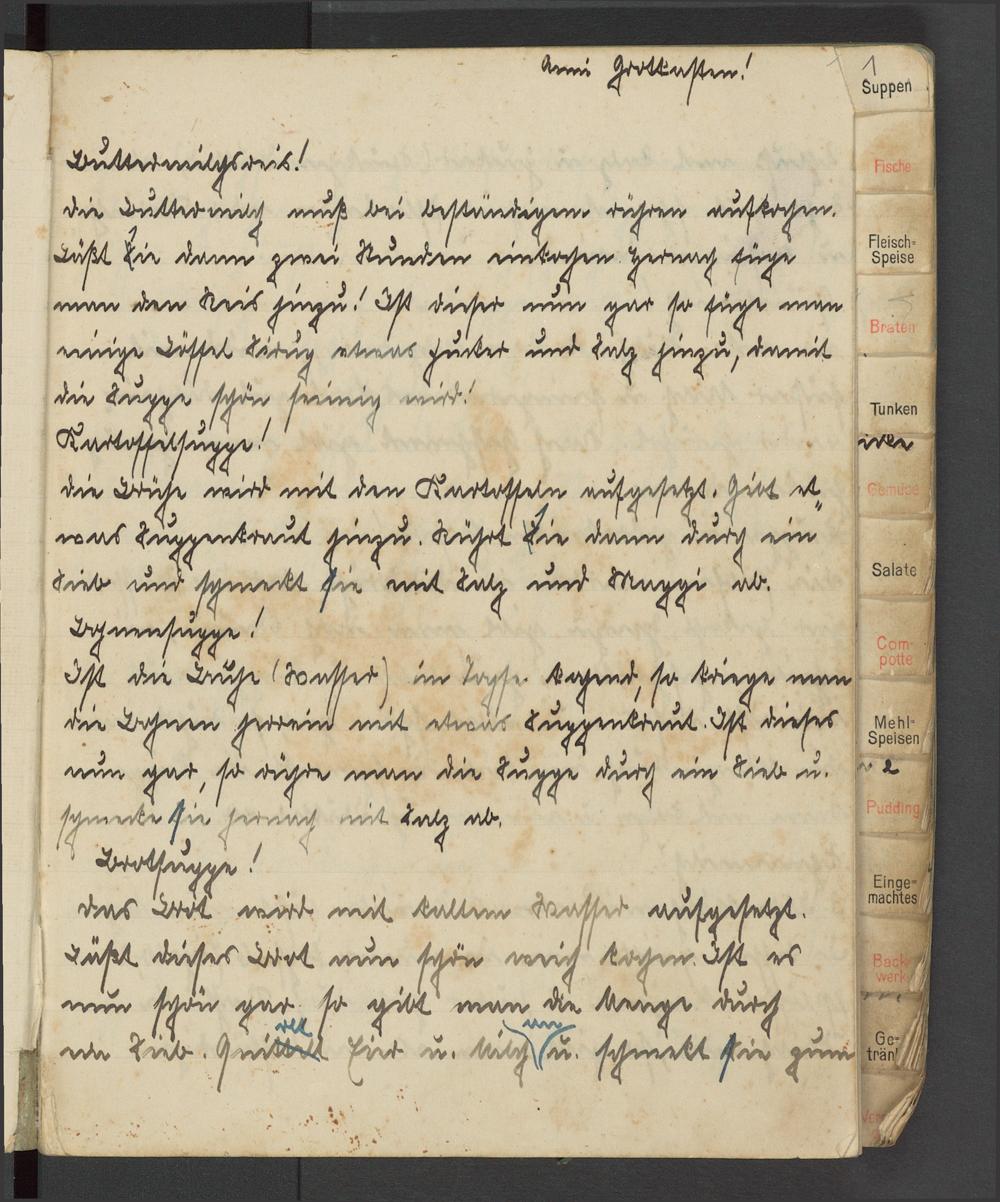 Anni Grottkasten!
Buttermilchsreis!
die Buttermilch muß bei beständigem rühren aufkochen.
Läßt sie dann zwei Stunden einkochen hernach füge
man den Reis hinzu! Ist dieser nun gar so füge man
einige Löffel Sirup etwas Zucker und Salz hinzu, damit
die Suppe schön seimig wird!
Kartoffelsuppe!
die Brühe wird mit den Kartoffeln aufgesetzt. Gibt et-
was Suppenkraut hinzu. Rührt sie dann durch ein
Sieb und schmeckt sie mit Salz und Maggi ab.
Bohnensuppe!
Ist die Bruhe (Wasser) im Topfe kochend, so kriege man
die Bohnen herrein mit etwas Suppenkraut. Ist dieses
nun gar, so rühre man die Suppe durch ein Sieb u.
schmecke sie hernach mit Salz ab.
Brotsuppe!
das Brot wird mit kaltem Wasser aufgesetzt.
Läßt dieses Brot nun schön weich kochen. Ist es
nun schön gar so gibt man die Menge durch
ein Sieb. Eier u. Milch an u. schmekt sie zum
1
Suppen
Fische
Fleisch=
Speise
Braten
Tunken
Gemüse
Salate
Com-
potte
Mehl-
Speisen
2
Pudding
Einge-
machtes
Back
werk
Ge-
trän